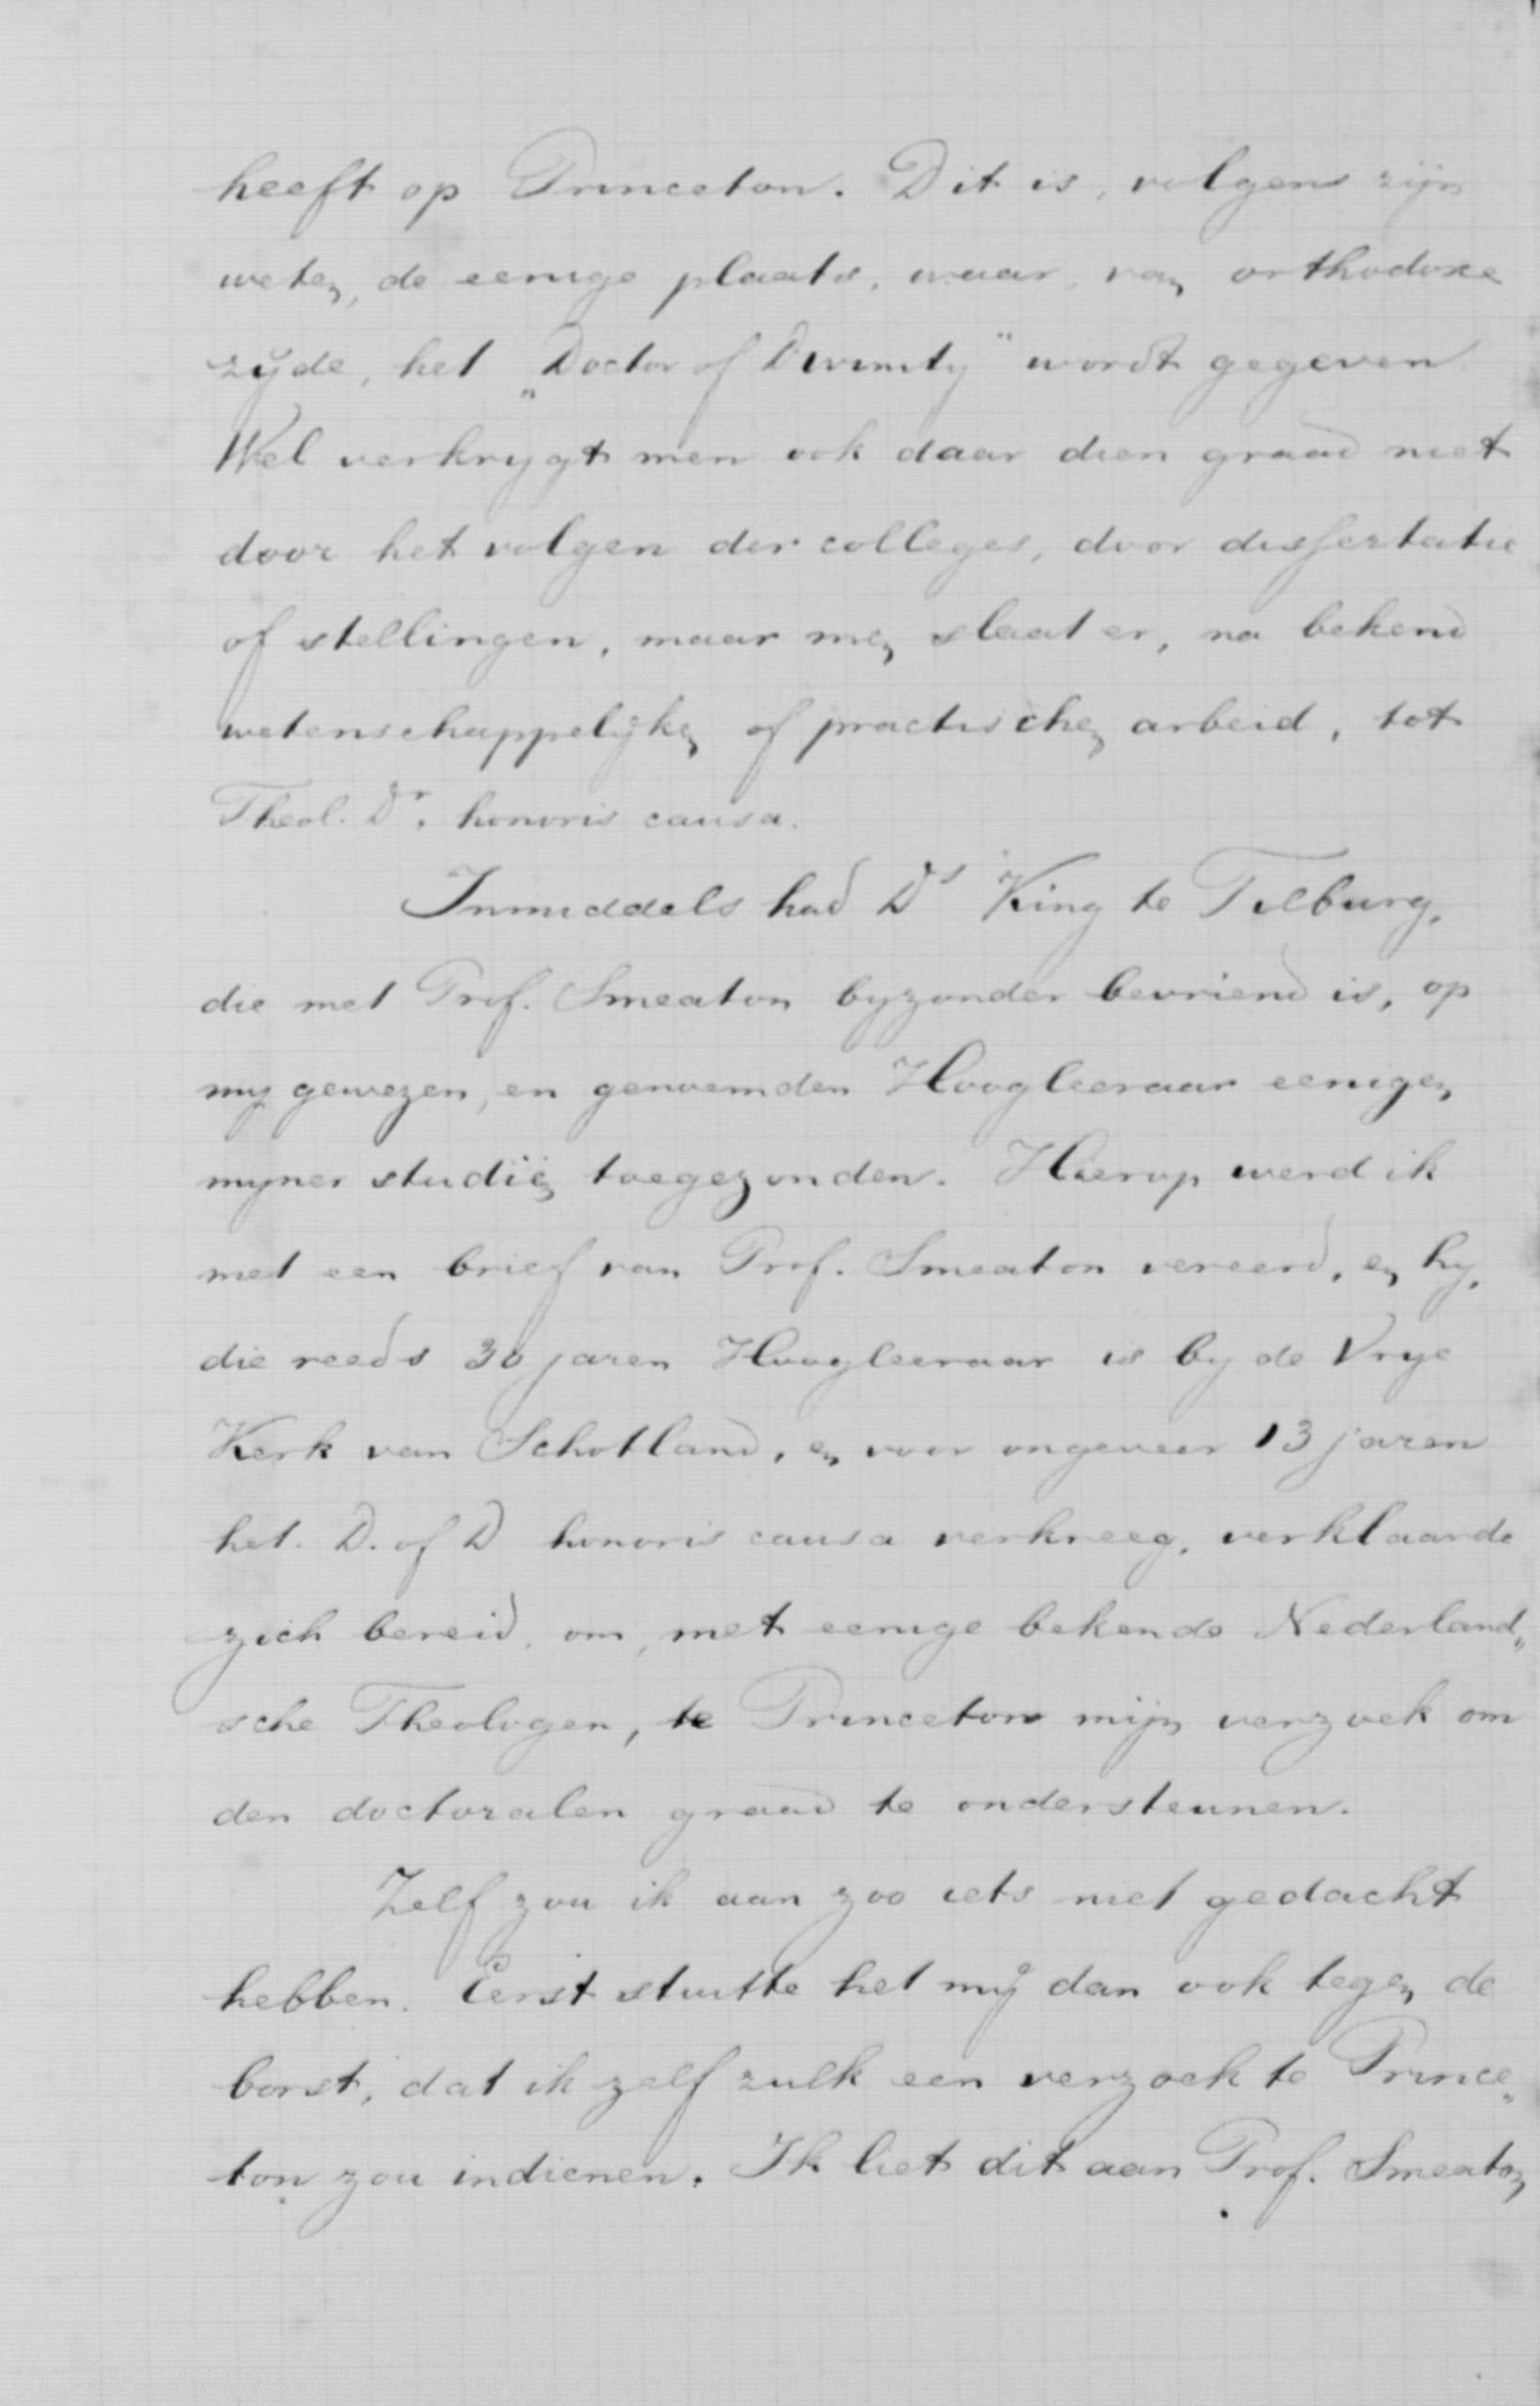 heeft op Princeton. Dit is, volgens zijn
weten, de eenige plaats, waar, van orthodoxe
zijde, het „Doctor of Divinity" wordt gegeven
Wel verkrygt men ook daar dien graad niet
door het volgen der colleges, door dissertatie
of stellingen, maar men slaat er, na bekend
wetenschappelijken of practischen arbeid, tot
Theol. Dr. honoris causa.
Inmiddels had Ds King te Tilburg,
die met Prof. Smeaton byzonder bevriend is, op
my gewezen, en genoemden Hoogleeraar eenigen
myner studiën toegezonden. Hierop werd ik
met een brief van Prof. Smeaton vereerd, en hy,
die reeds 30 jaren Hoogleeraar is by de Vrye
Kerk van Schotland, en voor ongeveer 13 jaren
het. D. of D honoris causa verkreeg, verklaarde
zich bereid, om, met eenige bekende Nederland„
sche Theologen, te Princeton mijn verzoek om
den doctoralen graad te ondersteunen.
Zelf zou ik aan zoo iets niet gedacht
hebben. Eerst stuitte het mij dan ook tegen de
borst, dat ik zelf zulk een verzoek te Prince„
ton zou indienen. Ik liet dit aan Prof. Smeaton